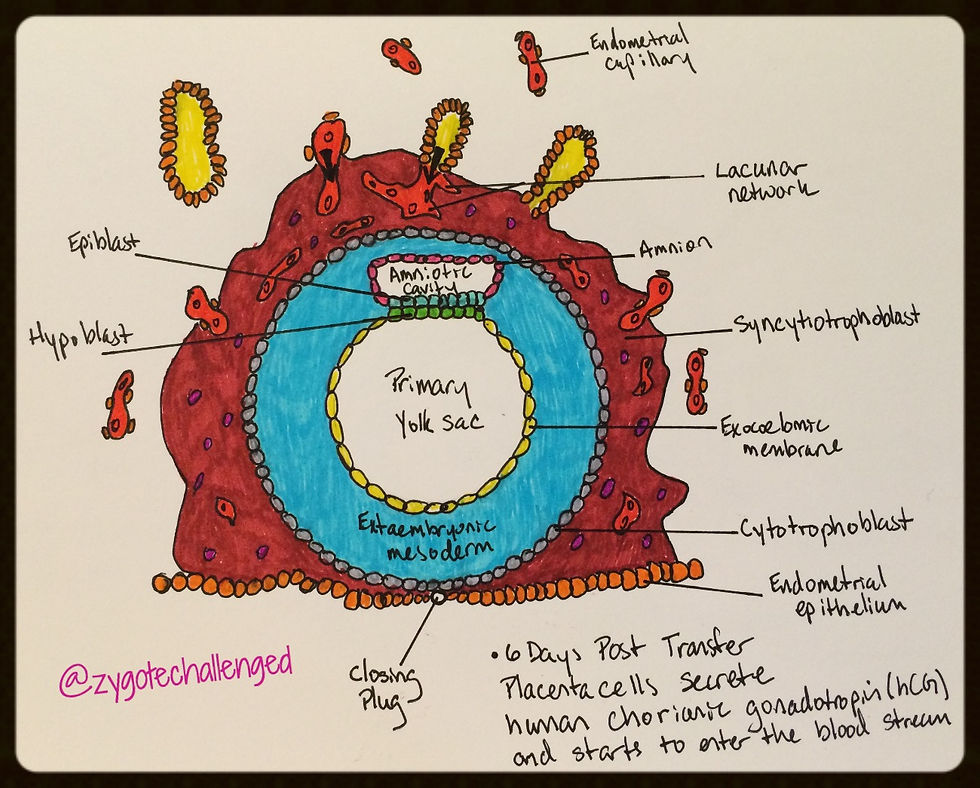 Endometrial
capillary
Lacunar
network
Epiblast
Amnion
Amniotic
cavity
Hypoblast
Syncytiotrophoblast
Primary
Yolk sac
Exocoelomic
membrane
Extaembryonic
mesoderm
Cytotrophoblast
Endometrial
epithelium
Closing
Plug
@zygotechallenged
• 6 Days Post Transfer
Placenta cells secrete
human chorionic gonadotropin (hCG)
and starts to enter the blood stream